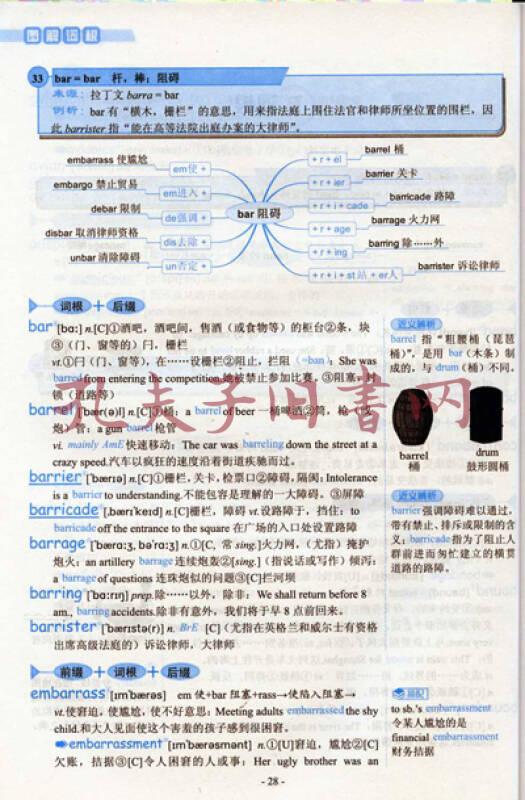 图解词根
33 bar = bar 杆，棒；阻碍
来源：拉丁文 barra = bar
例析：bar 有“横木，栅栏”的意思，用来指法庭上围住法官和律师所坐位置的围栏，因
此 barrister 指“能在高等法院出庭办案的大律师”。
embarrass 使尴尬
em使 +
embargo 禁止贸易
em进入 +
debar 限制
de强调 +
disbar 取消律师资格
dis去除 +
unbar 清除障碍
un否定 +
bar 阻碍
+ r + el
barrel 桶
+ r + ier
barrier 关卡
+ r + i + cade
barricade 路障
+ r + age
barrage 火力网
+ r + ing
barring 除……外
+ r + i + st站 + er人
barrister 诉讼律师
词根 + 后缀
bar [bɑː] n.[C]①酒吧，酒吧间，售酒（或食物等）的柜台②条，块
③（门、窗等的）闩，栅栏
vt.①闩（门、窗等），在……设栅栏②阻止，拦阻（=ban：She was
barred from entering the competition.她被禁止参加比赛。③阻塞，封
锁（道路等）
barrel [ˈbær(ə)l] n.[C]①桶：a barrel of beer 一桶啤酒②筒，枪（或
炮）管：a gun barrel 枪管
vi. mainly AmE 快速移动：The car was barreling down the street at a
crazy speed.汽车以疯狂的速度沿着街道疾驰而过。
barrier [ˈbærɪə] n.[C]①栅栏，关卡，检票口②障碍，隔阂：Intolerance
is a barrier to understanding.不能包容是理解的一大障碍。③屏障
barricade [ˌbærɪˈkeɪd] n.[C]栅栏，障碍 vt.设路障于，挡住：to
barricade off the entrance to the square 在广场的入口处设置路障
barrage [ˈbærɑːʒ, bəˈrɑːʒ] n.①[C, 常 sing.]火力网，（尤指）掩护
炮火：an artillery barrage 连续炮轰②[sing.]（指说话或写作）倾泻：
a barrage of questions 连珠炮似的问题③[C]拦河坝
barring [ˈbɑːrɪŋ] prep.除……以外，除非：We shall return before 8
am., barring accidents.除非有意外，我们将于早 8 点前回来。
barrister [ˈbærɪstə(r)] n. BrE [C]（尤指在英格兰和威尔士有资格
出席高级法庭的）诉讼律师，大律师
前缀 + 词根 + 后缀
embarrass [ɪmˈbærəs] em 使+bar 阻塞+rass→使陷入阻塞→
vt.使窘迫，使尴尬，使不好意思：Meeting adults embarrassed the shy
child.和大人见面使这个害羞的孩子感到很困窘。
embarrassment [ɪmˈbærəsmənt] n.①[U]窘迫，尴尬②[C]
欠账，拮据③[C]令人困窘的人或事：Her ugly brother was an
近义辨析
barrel 指“粗腰桶（琵琶
桶）”，是用 bar（木条）制
成的，与 drum（桶）不同。
barrel
桶
drum
鼓形圆桶
近义辨析
barrier 强调障碍难以通过，
带有禁止、排斥或限制的含
义；barricade 指为了阻止人
群前进而匆忙建立的横贯
道路的路障。
搭配
to sb.'s embarrassment
令某人尴尬的是
financial embarrassment
财务拮据
- 28 -
孔夫子旧书网